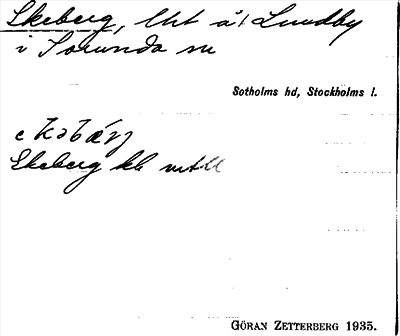 Ekeberg, lht å Lundby
i Sorunda sn
Sotholms hd, Stockholms l.
Ekeberg kb
GÖRAN ZETTERBERG 1935.